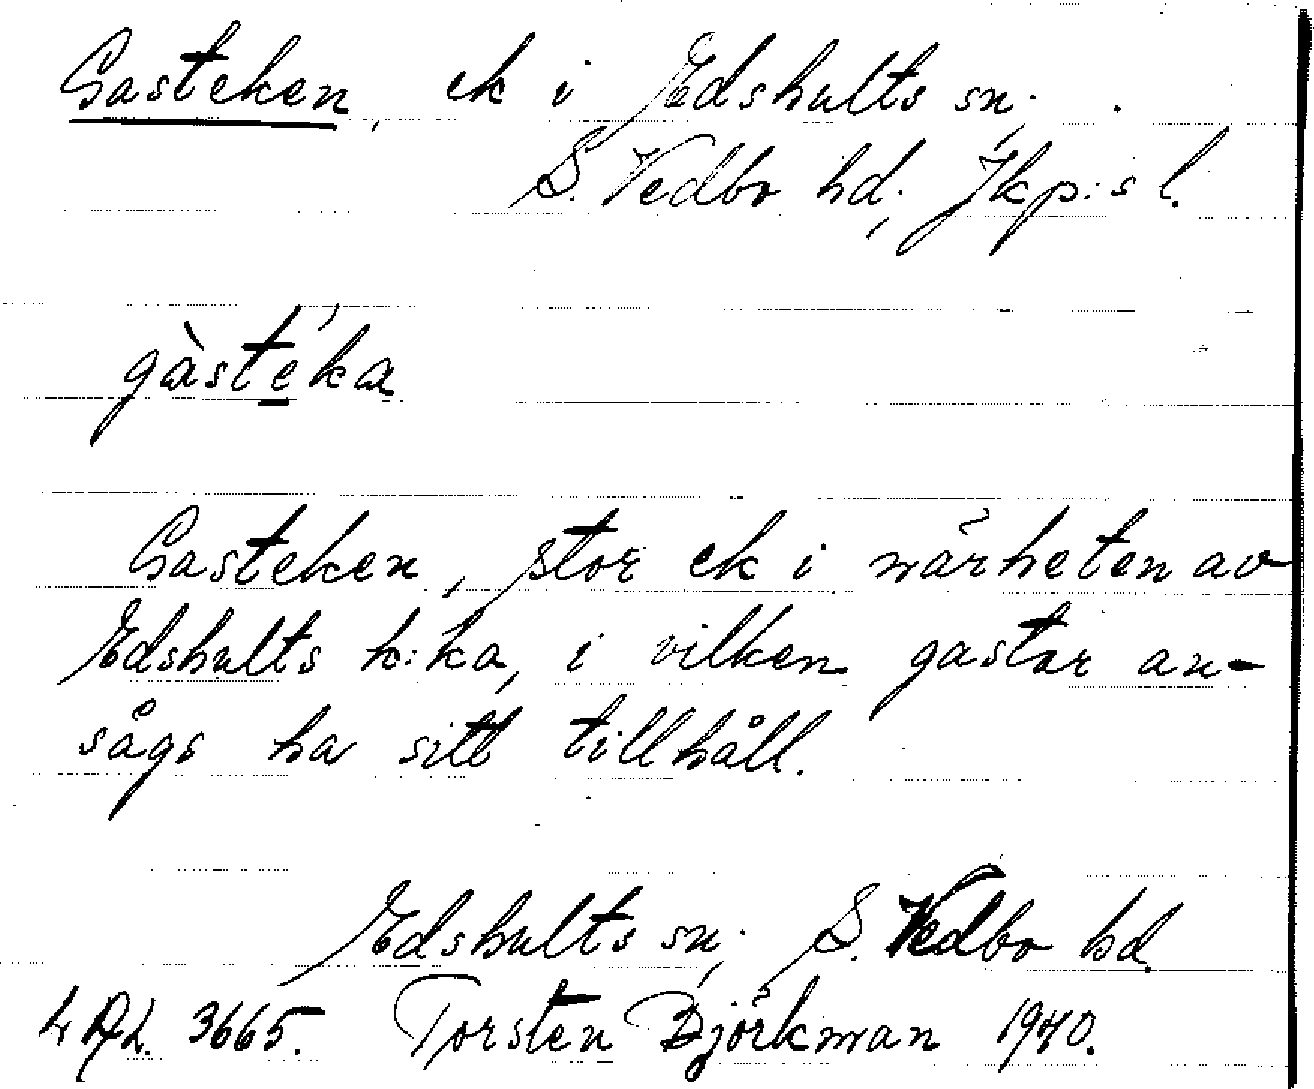 Gasteken, ek i Edshults sn;
S. Vedbo hd; Jkp:s l.
gàsté̲ka
Gasteken, stor ek i närheten av
Edshults k:ka, i vilken gastar an-
sågs ha sitt tillhåll.
Edshults sn; S. Vedbo hd.
3665. Torsten Björkman 1940.